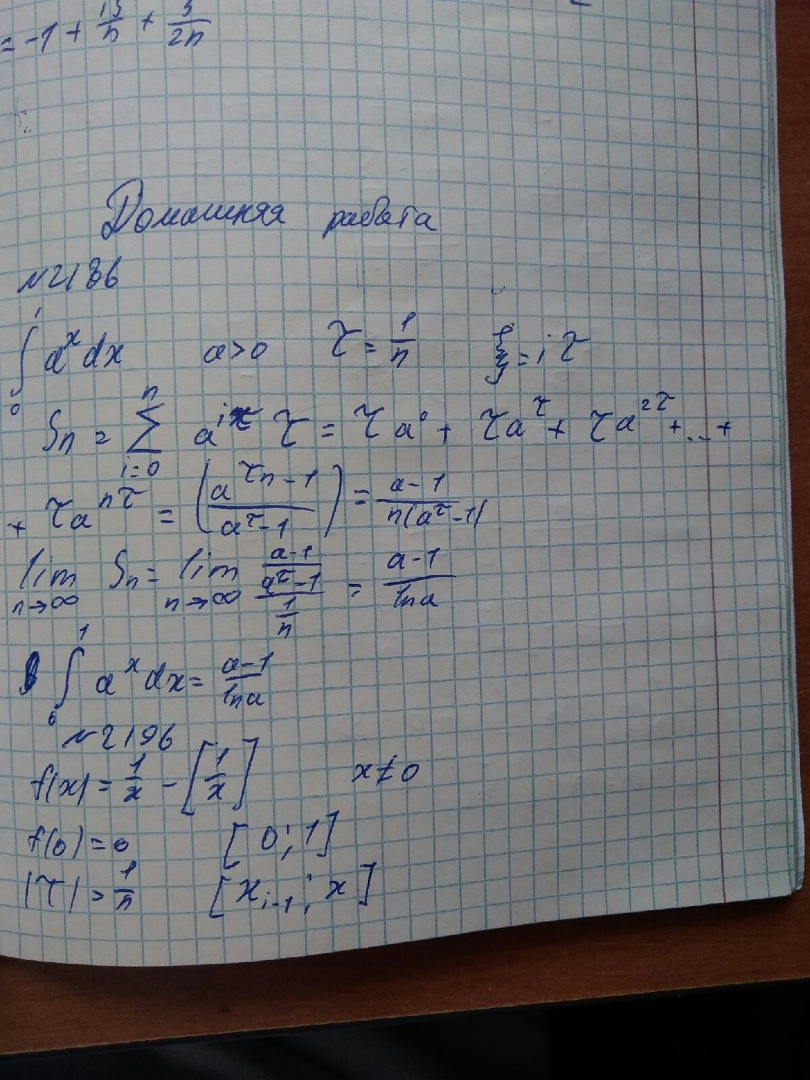 = -1 + 15/n + 5/2n
Домашняя работа
№2186
∫₀¹ aˣdx a>0 τ = 1/n ξ = iτ
Sₙ = ∑ᵢ₌₀ⁿ a^(iτ) τ = τa⁰ + τa^τ + τa^(2τ) + ... +
+ τa^(nτ) = (a^(τn-1)/a^τ-1) = a-1/n(a^τ-1)
lim n→∞ Sₙ = lim n→∞ (a-1)/((a^τ-1)/(1/n)) = a-1/ln a
∫₀¹ aˣdx = a-1/ln a
№2196
f(x) = 1/x - [1/x] x≠0
f(0) = 0 [0; 1]
|τ| > 1/n [xᵢ₋₁; x]